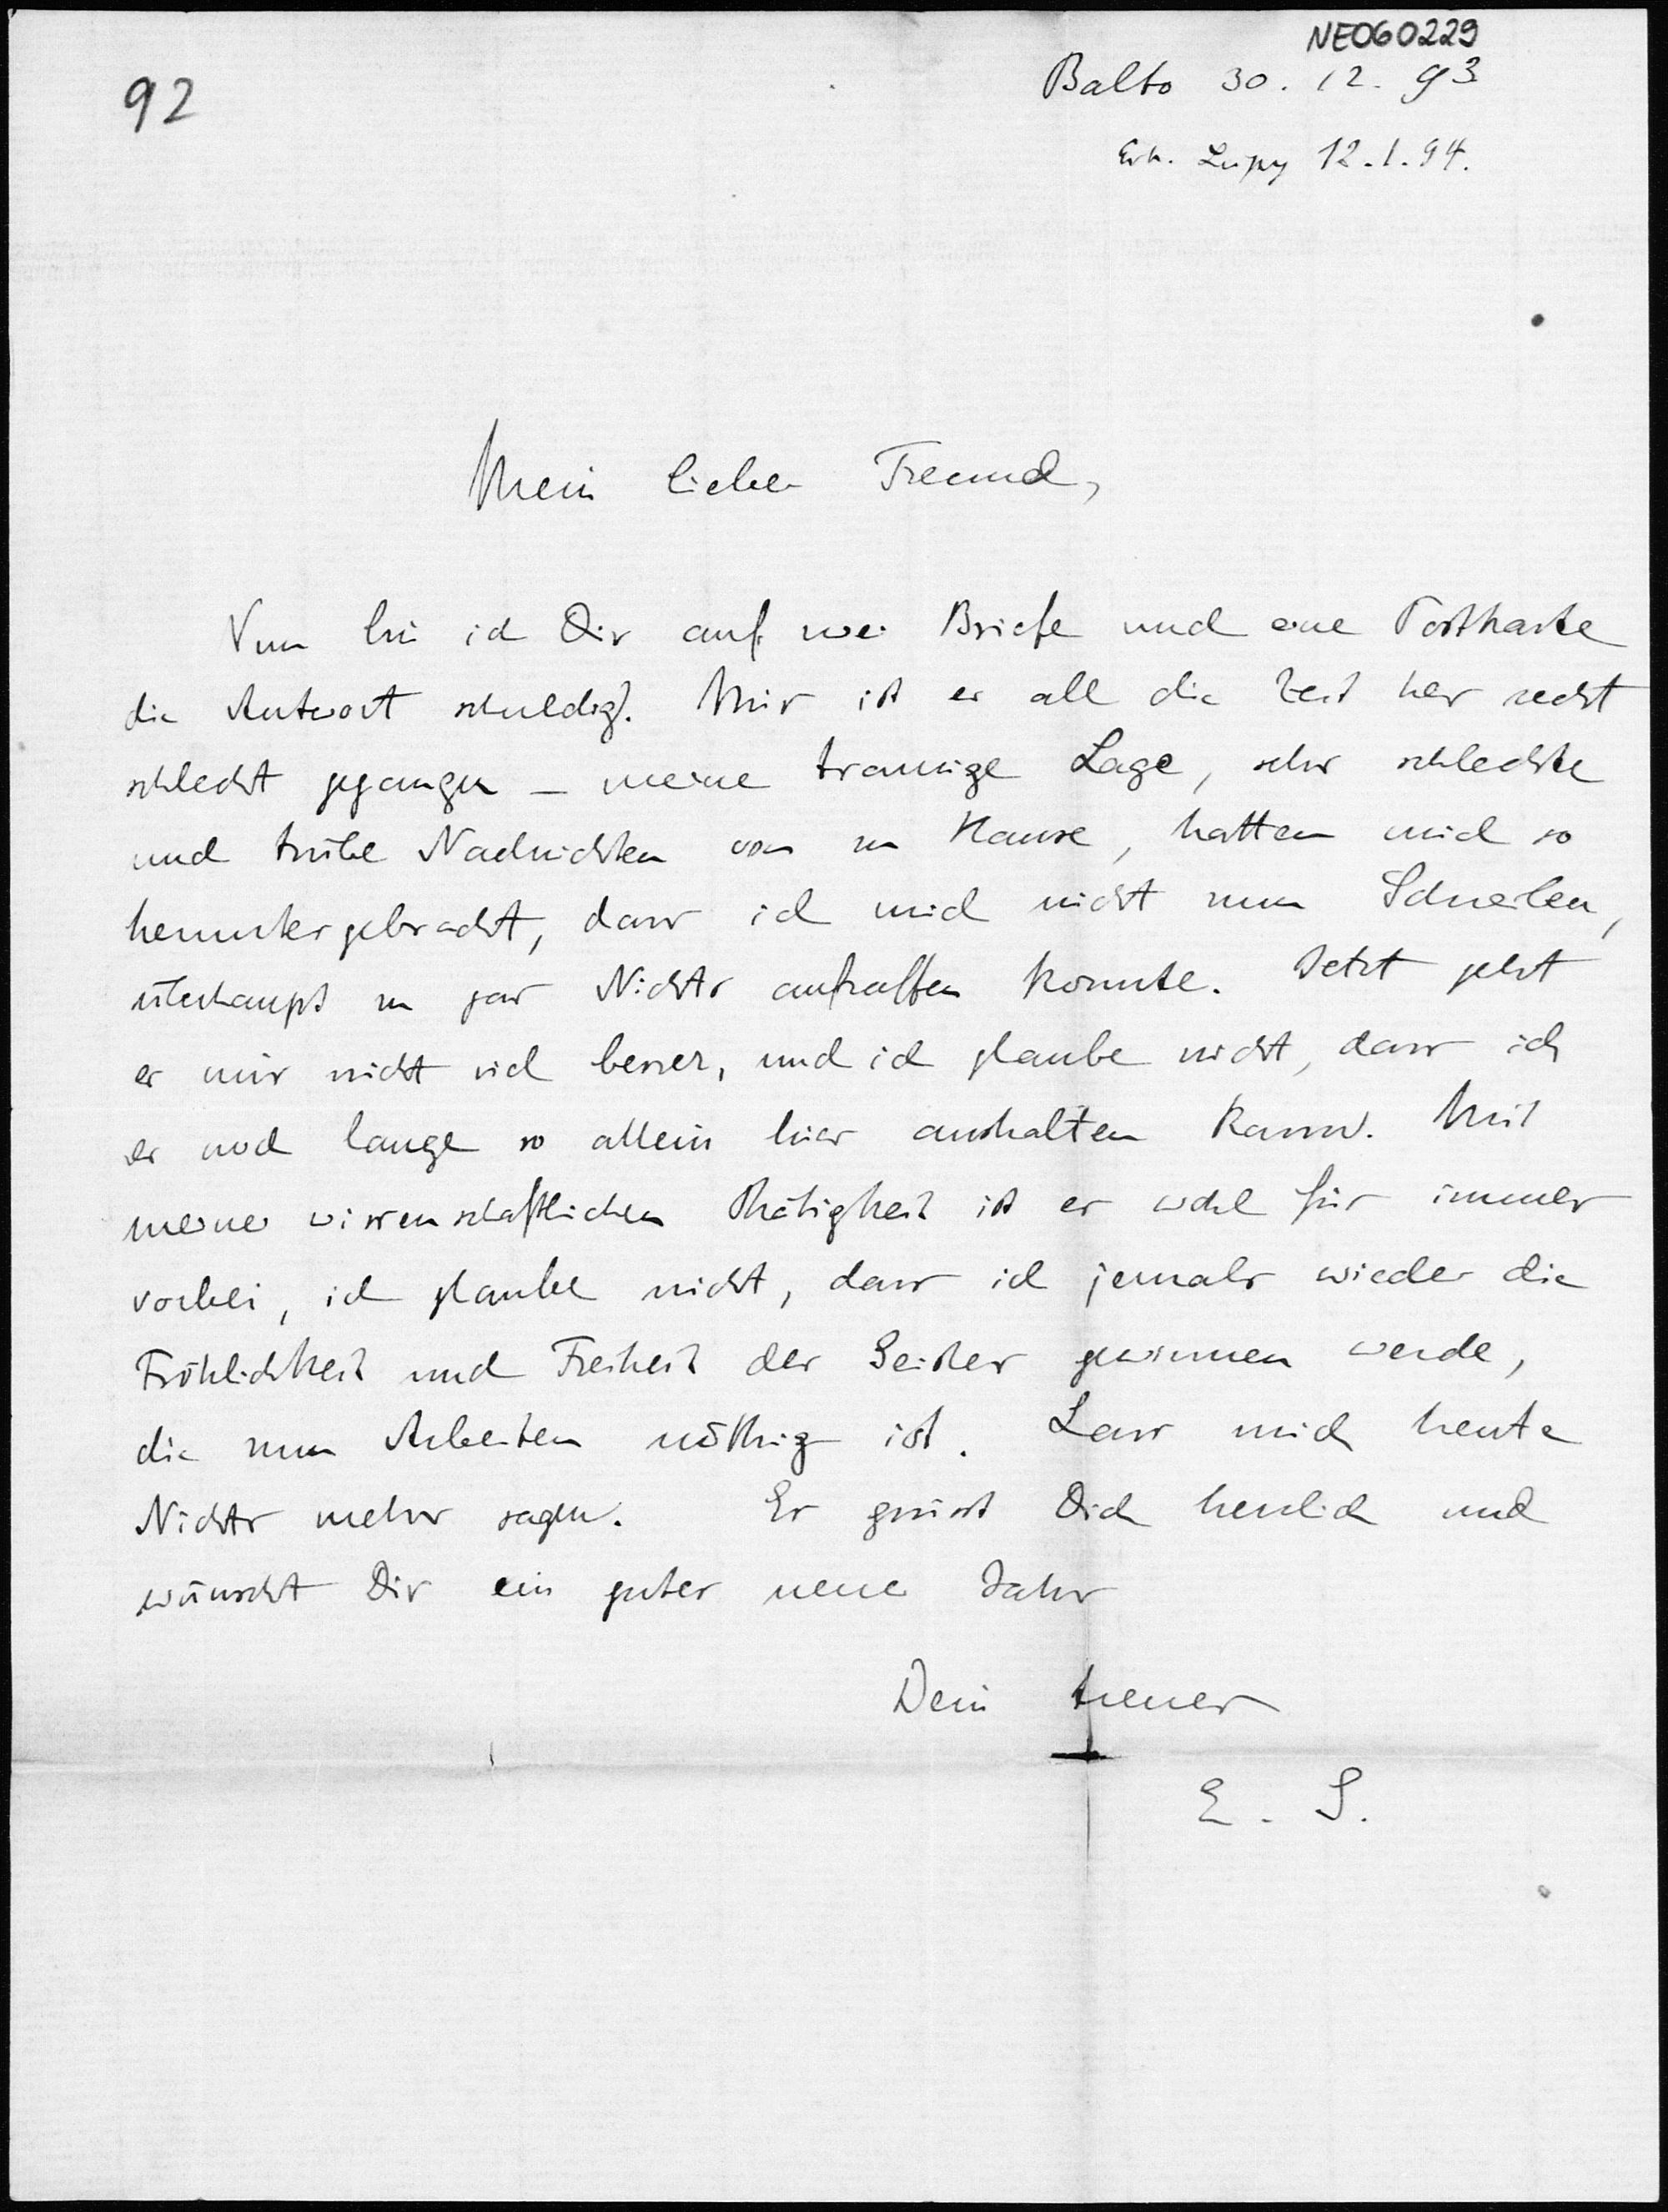 NE060229
92
Balto 30. 12. 93
Erh. Lupy 12.1.94.
Mein lieber Freund,
Nun bin ich Dir auf zwei Briefe und eine Postkarte
die Antwort schuldig. Mir ist es all die Zeit her recht
schlecht gegangen – meine traurige Lage, sehr schlechte
und trübe Nachrichten von zu Hause, hatten mich so
heruntergebracht, dass ich mich nicht zum Schreiben,
überhaupt zu gar Nichts aufraffen konnte. Jetzt geht
es mir nicht viel besser, und ich glaube nicht, dass ich
es noch lange so allein hier aushalten kann. Mit
meiner wissenschaftlichen Thätigkeit ist es wohl für immer
vorbei, ich glaube nicht, dass ich jemals wieder die
Fröhlichkeit und Freiheit des Geistes gewinnen werde,
die zum Arbeiten nöthig ist. Lass mich heute
Nichts mehr sagen. Es grüsst Dich herzlich und
wünscht Dir ein gutes neues Jahr
Dein treuer
E. S.